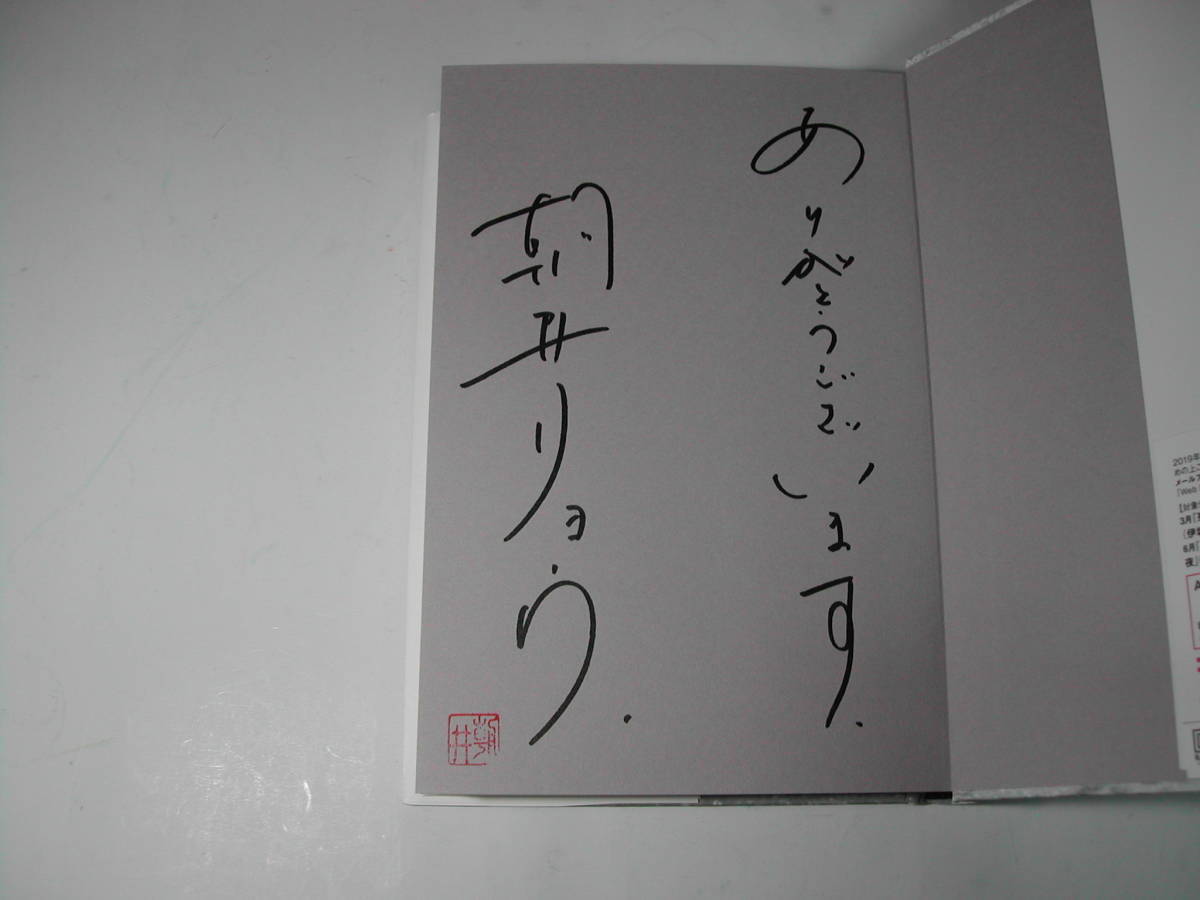 ありがとうございます.
朝井リョウ.
朝井
2019年
めの上
メールア
『Web
【対象
3月『
（伊坂
6月『
夜』